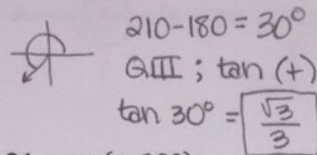 210-180 = 30°
QIII ; tan (+)
tan 30° = √3/3